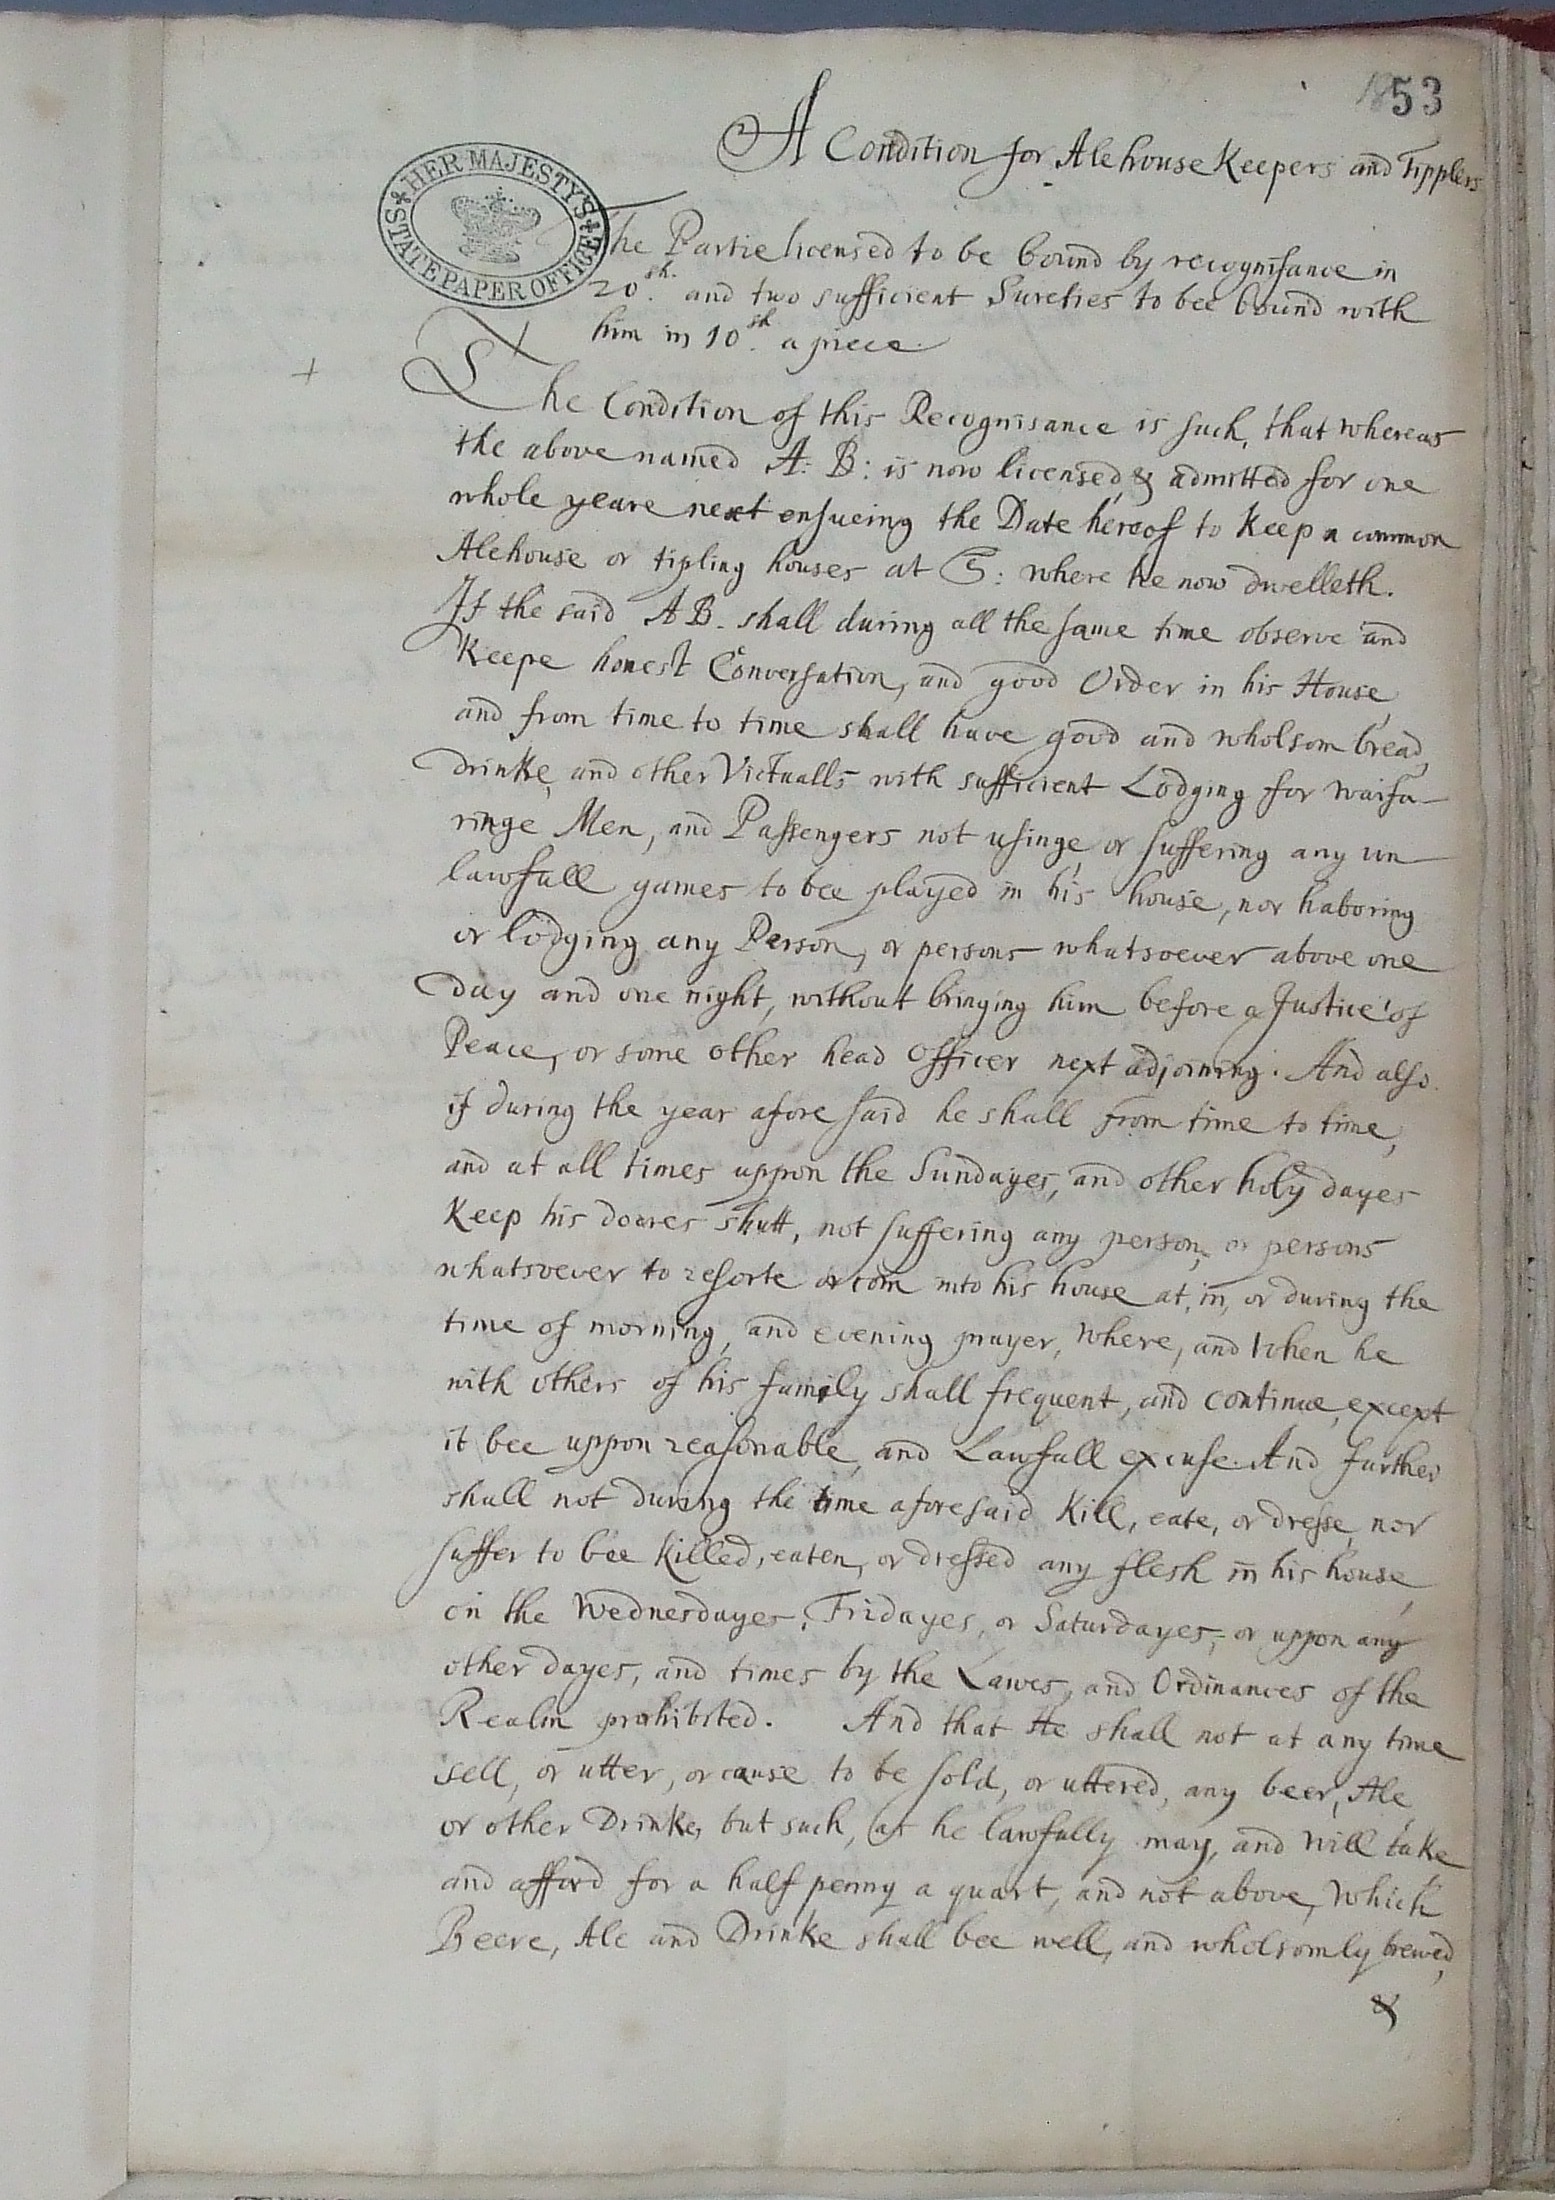 53
A Condition for Alehouse Keepers and Tipplers
HER MAJESTY'S
STATE PAPER OFFICE
The Partie licensed to be bound by recognisance in
20sh. and two sufficient Sureties to bee bound with
him in 10sh. a piece.
+
The Condition of this Recognisance is such, that whereas
the above named A: B: is now licensed, & admitted for one
whole yeare next ensueing the Date hereof to Keep a common
Alehouse or tipling houses at S: where he now dwelleth.
If the said A B. shall during all the same time observe and
Keepe honest Conversation, and good Order in his House,
and from time to time shall have good and wholsom bread,
drinke, and other Victualls with sufficient Lodging for waifa-
ringe Men, and Passengers not usinge, or suffering any un-
lawfull games to bee played in his house, nor haboring
or lodging any Person, or persons whatsoever above one
day and one night, without bringing him before a Justice of
Peace, or some other head Officer next adjoining. And also
if during the year afore said he shall from time to time,
and at all times uppon the Sundayes, and other holy dayes
Keep his doares shutt, not suffering any person, or persons
whatsoever to resorte or com into his house at, in, or during the
time of morning, and evening prayer, Where, and When he
with others of his family shall frequent, and continue, except
it bee uppon reasonable, and Lawfull excuse. And further
shall not during the time aforesaid Kill, eate, or dresse, nor
suffer to bee Killed, eaten, or dressed any flesh in his house,
on the Wednesdayes, Fridayes, or Saturdayes, or uppon any
other dayes, and times by the Lawes, and Ordinances of the
Realm prohibited. And that He shall not at any time
sell, or utter, or cause to be sold, or uttered, any beer, Ale
or other Drinke, but such, as he lawfully may, and Will take
and afford for a half penny a quart, and not above, Which
Beere, Ale and Drinke shall bee well, and wholsomly brewed,
&